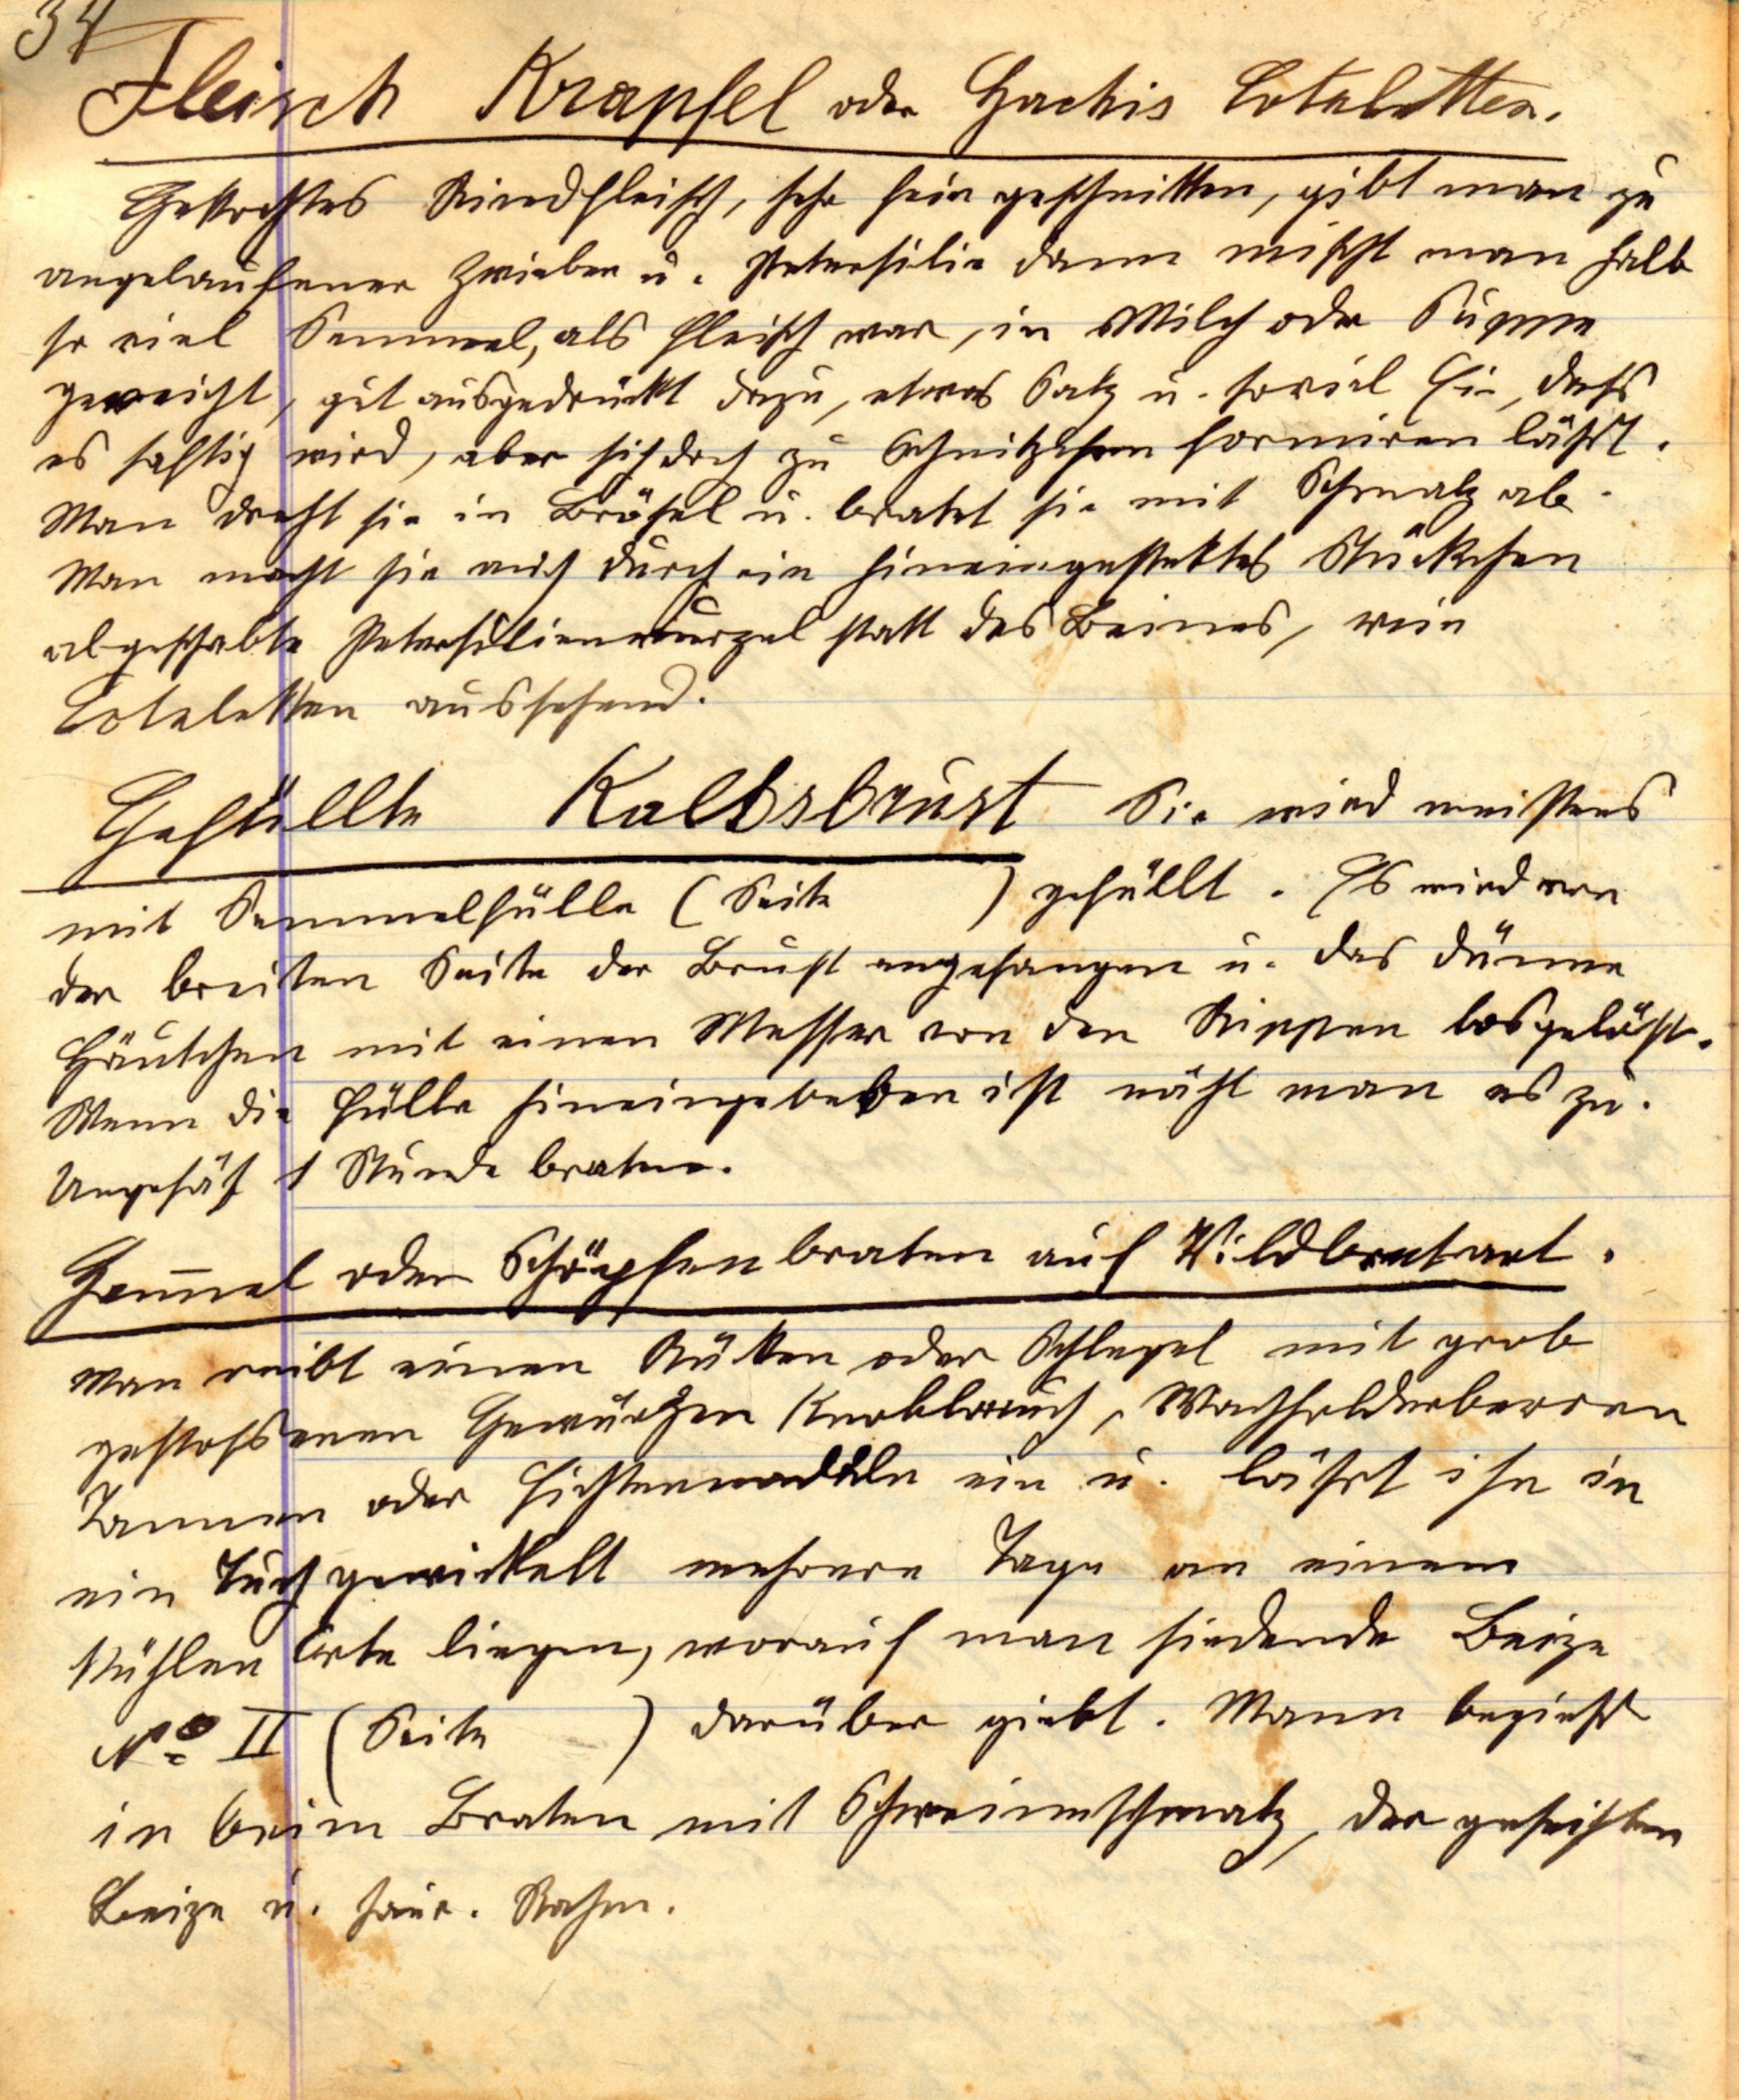 34
Fleisch Krapfel oder Hachis Coteletten.
Gekochtes Rindfleisch, sehr fein geschnitten, gibt man zu
angelaufener Zwiebel u. Petersilie dann mischt man halb
so viel Semmel, als Fleisch war, in Milch oder Suppe
geweicht, gut ausgedrückt dazu, etwas Salz u. soviel Ei, daß
es saftig wird, aber sich doch zu Schnitzchen formiren läßt.
Man dreht sie in Brösel u. bratet sie mit Schmalz ab.
Man macht sie auch durch ein hineingestektes Stückchen
abgeschabte Petersilienwurzel statt des Beines, wie
Coteletten aussehend.
Gefüllte Kalbsbrust Sie wird meistens
mit Semmelfülle (Seite ) gefüllt. Es wird von
der breiten Seite der Brust angefangen u. das dünne
Häutchen mit einen Messer von den Rippen losgelöst.
Wenn die Fülle hineingegeben ist näht man es zu.
Ungefäh 1 Stunde braten.
Ham̅el oder Schöpsenbraten auf Wildbretart.
Man reibt einen Rücken oder Schlegel mit grob
gestoßenen Gewürzen Knoblauch, Wachholderberren
Tannen oder Fichtennadeln ein u. läßt ihn in
ein Tuch gewickelt mehrere Tage an einem
kühlen Orte liegen, worauf man siedende Beize
No II (Seite ) darüber giebt. Mann begießt
in beim Braten mit Schweinschmalz, der geseihten
Beize u. saur. Rahm.